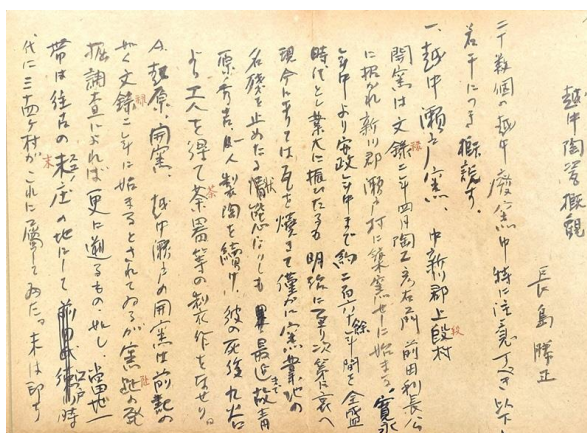 越中陶窯概観
長島勝正
二十数個の越中廃窯中特に注意すべき
若干につき概説す。
一、越中瀬戸窯、中新川郡上段村
開窯は文録二年四月陶工彦右衛門前田利長公
に招かれ新川郡瀬戸村に築窯せしに始まる。寛永
年中より安政年中まで約二百六十余年間を全盛
時代とし業大に振ひたるが明治に至り次第に衰へ
現今に至りては瓦を焼きて僅かに窯業地の
名残を止めたる状態なりしも最近故吉
原秀吉 製陶を続け、彼の死後九谷
より工人を得て茶器等の製作をなせり。
A.起原、開窯、越中瀬戸の開窯は前記の
如く文録二年に始まるとされてゐるが窯址の発
掘調査によれば更に遡るものゝ如し、当地一
帯は往昔の 庄の地にして 時
代に三十四ケ村がこれに属してゐた。末は即ち